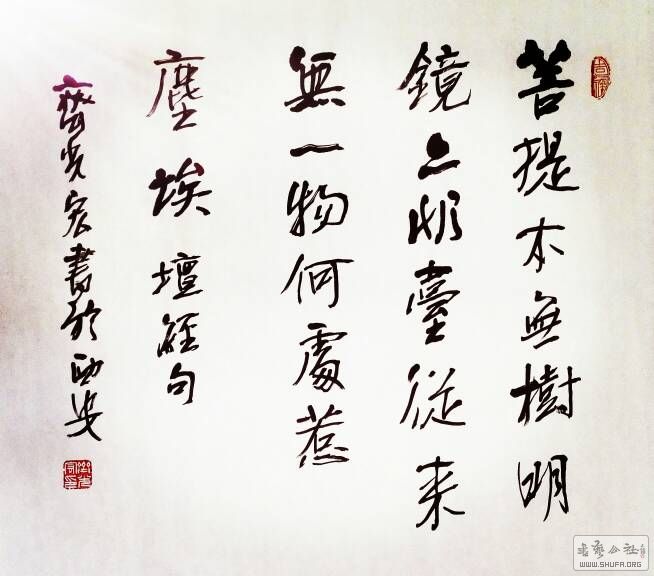 菩提本無樹明
鏡亦非臺從来
無一物何處惹
塵埃壇經句
齊光宏書於西安
书艺公社
WWW.SHUFA.ORG